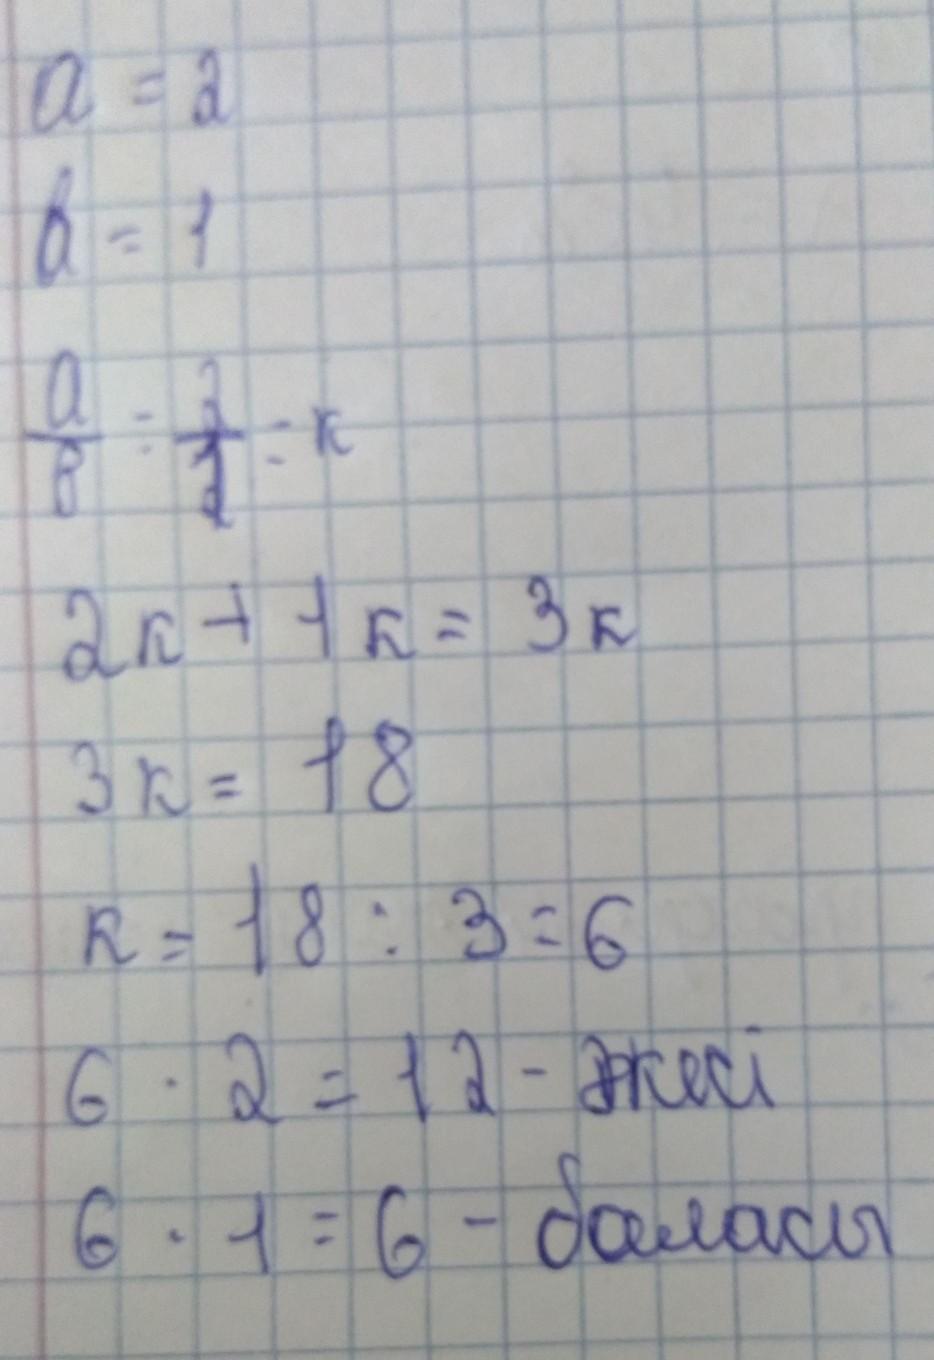 a = 2
b = 1
a/b = 2/1 = к
2к + 1к = 3к
3к = 18
к = 18 : 3 = 6
6 · 2 = 12 - әкесі
6 · 1 = 6 - баласы